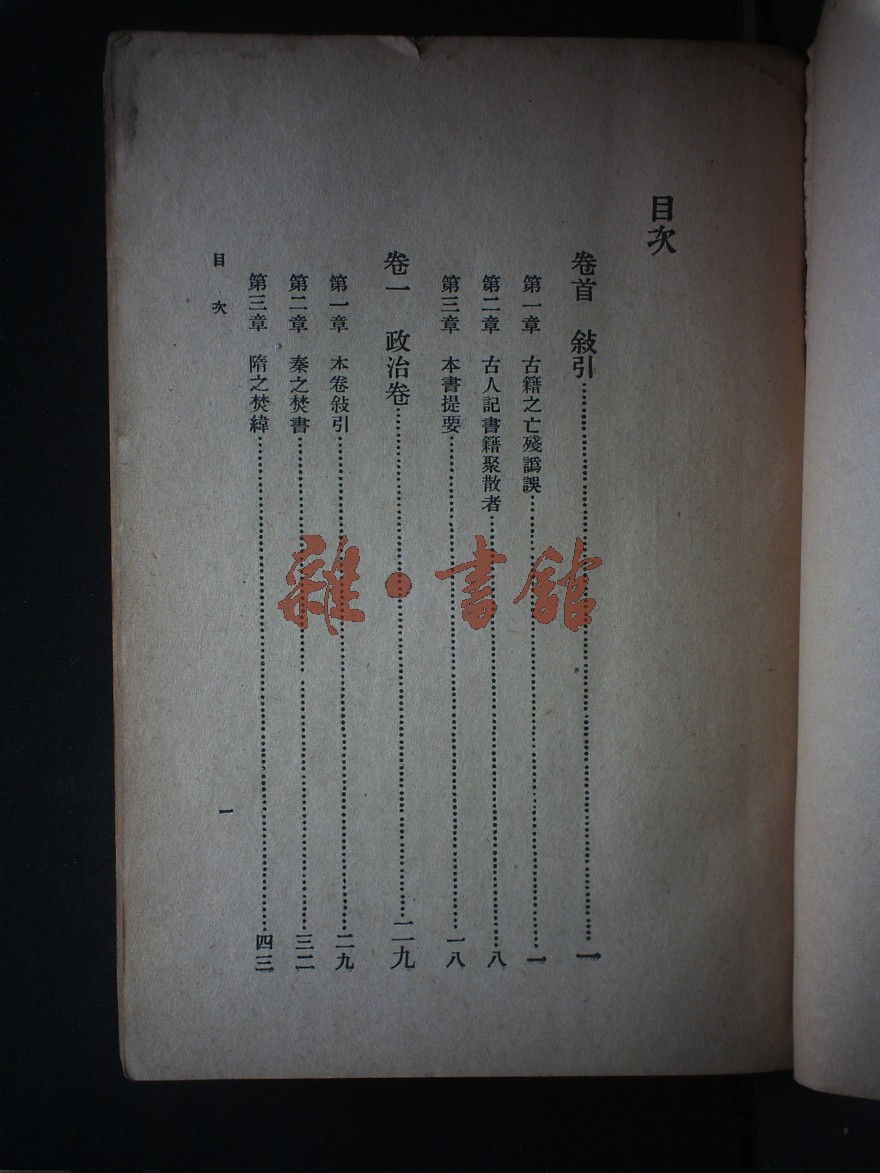 目次
卷首　敍引……一
第一章　古籍之亡殘譌誤……一
第二章　古人記書籍聚散者……八
第三章　本書提要……一八
卷一　政治卷……二九
第一章　本卷敍引……二九
第二章　秦之焚書……三二
第三章　隋之焚緯……四三
目次　一
雜·書館